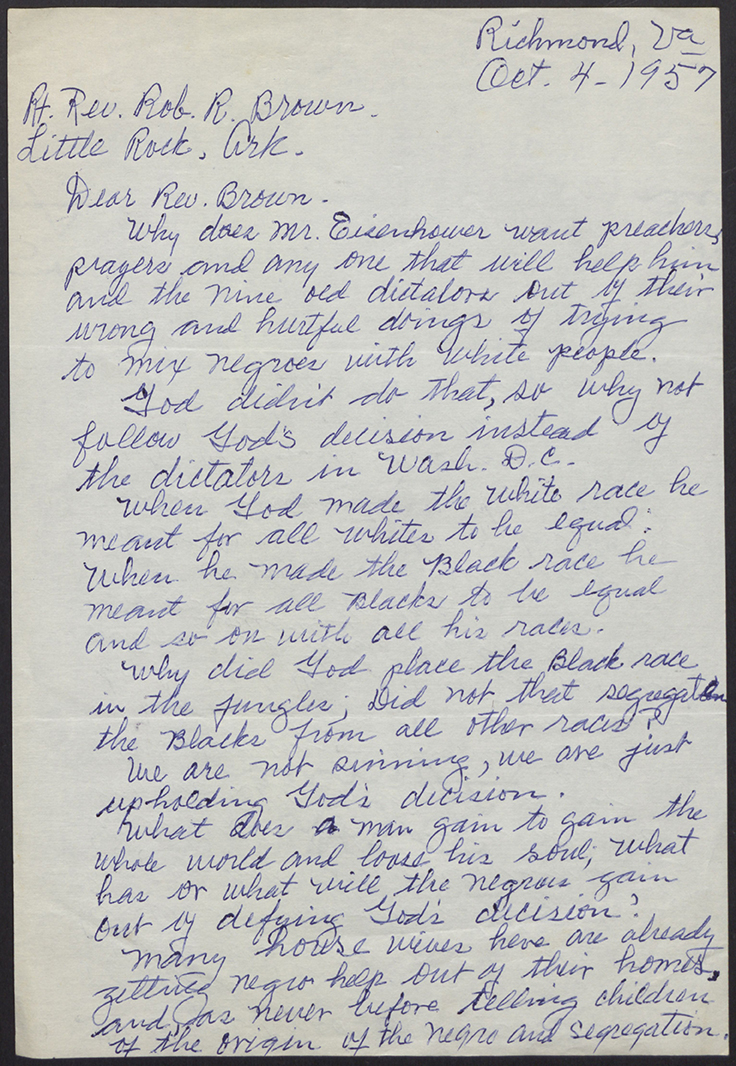 Richmond, Va
Oct. 4-1957
Rt. Rev. Rob. R. Brown.
Little Rock, Ark.
Dear Rev. Brown.
Why does Mr. Eisenhower want preachers,
prayers and any one that will help him
and the nine old dictators out of their
wrong and hurtful doings of trying
to mix negroes with white people.
God didn't do that, so why not
follow God's decision instead of
the dictators in Wash. D.C.
When God made the White race he
meant for all whites to be equal:
When he made the Black race he
meant for all Blacks to be equal
and so on with all his races.
Why did God place the Black race
in the jungles; Did not that segregation
the Blacks from all other races?
We are not sinning, we are just
upholding God's decision.
What does a man gain to gain the
whole world and loose his soul; What
has or what will the negroes gain
out of defying God's decision?
Many house wives here are already
getting negro help out of their homes,
and, as never before telling children
of the origin of the negro and segregation.